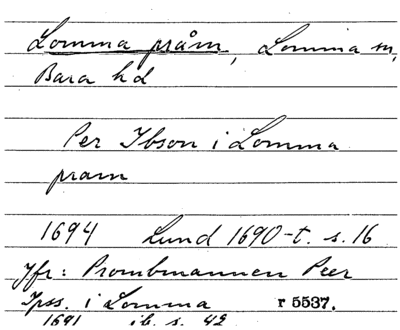 Lomma pråm, Lomma sn,
Bara hd
Per Ibson i Lomma
pram
1694 Lund 1690-t. s. 16
Jfr: Prombmannen Peer
Ipss. i Lomma r 5537.
1691 ib. s. 42